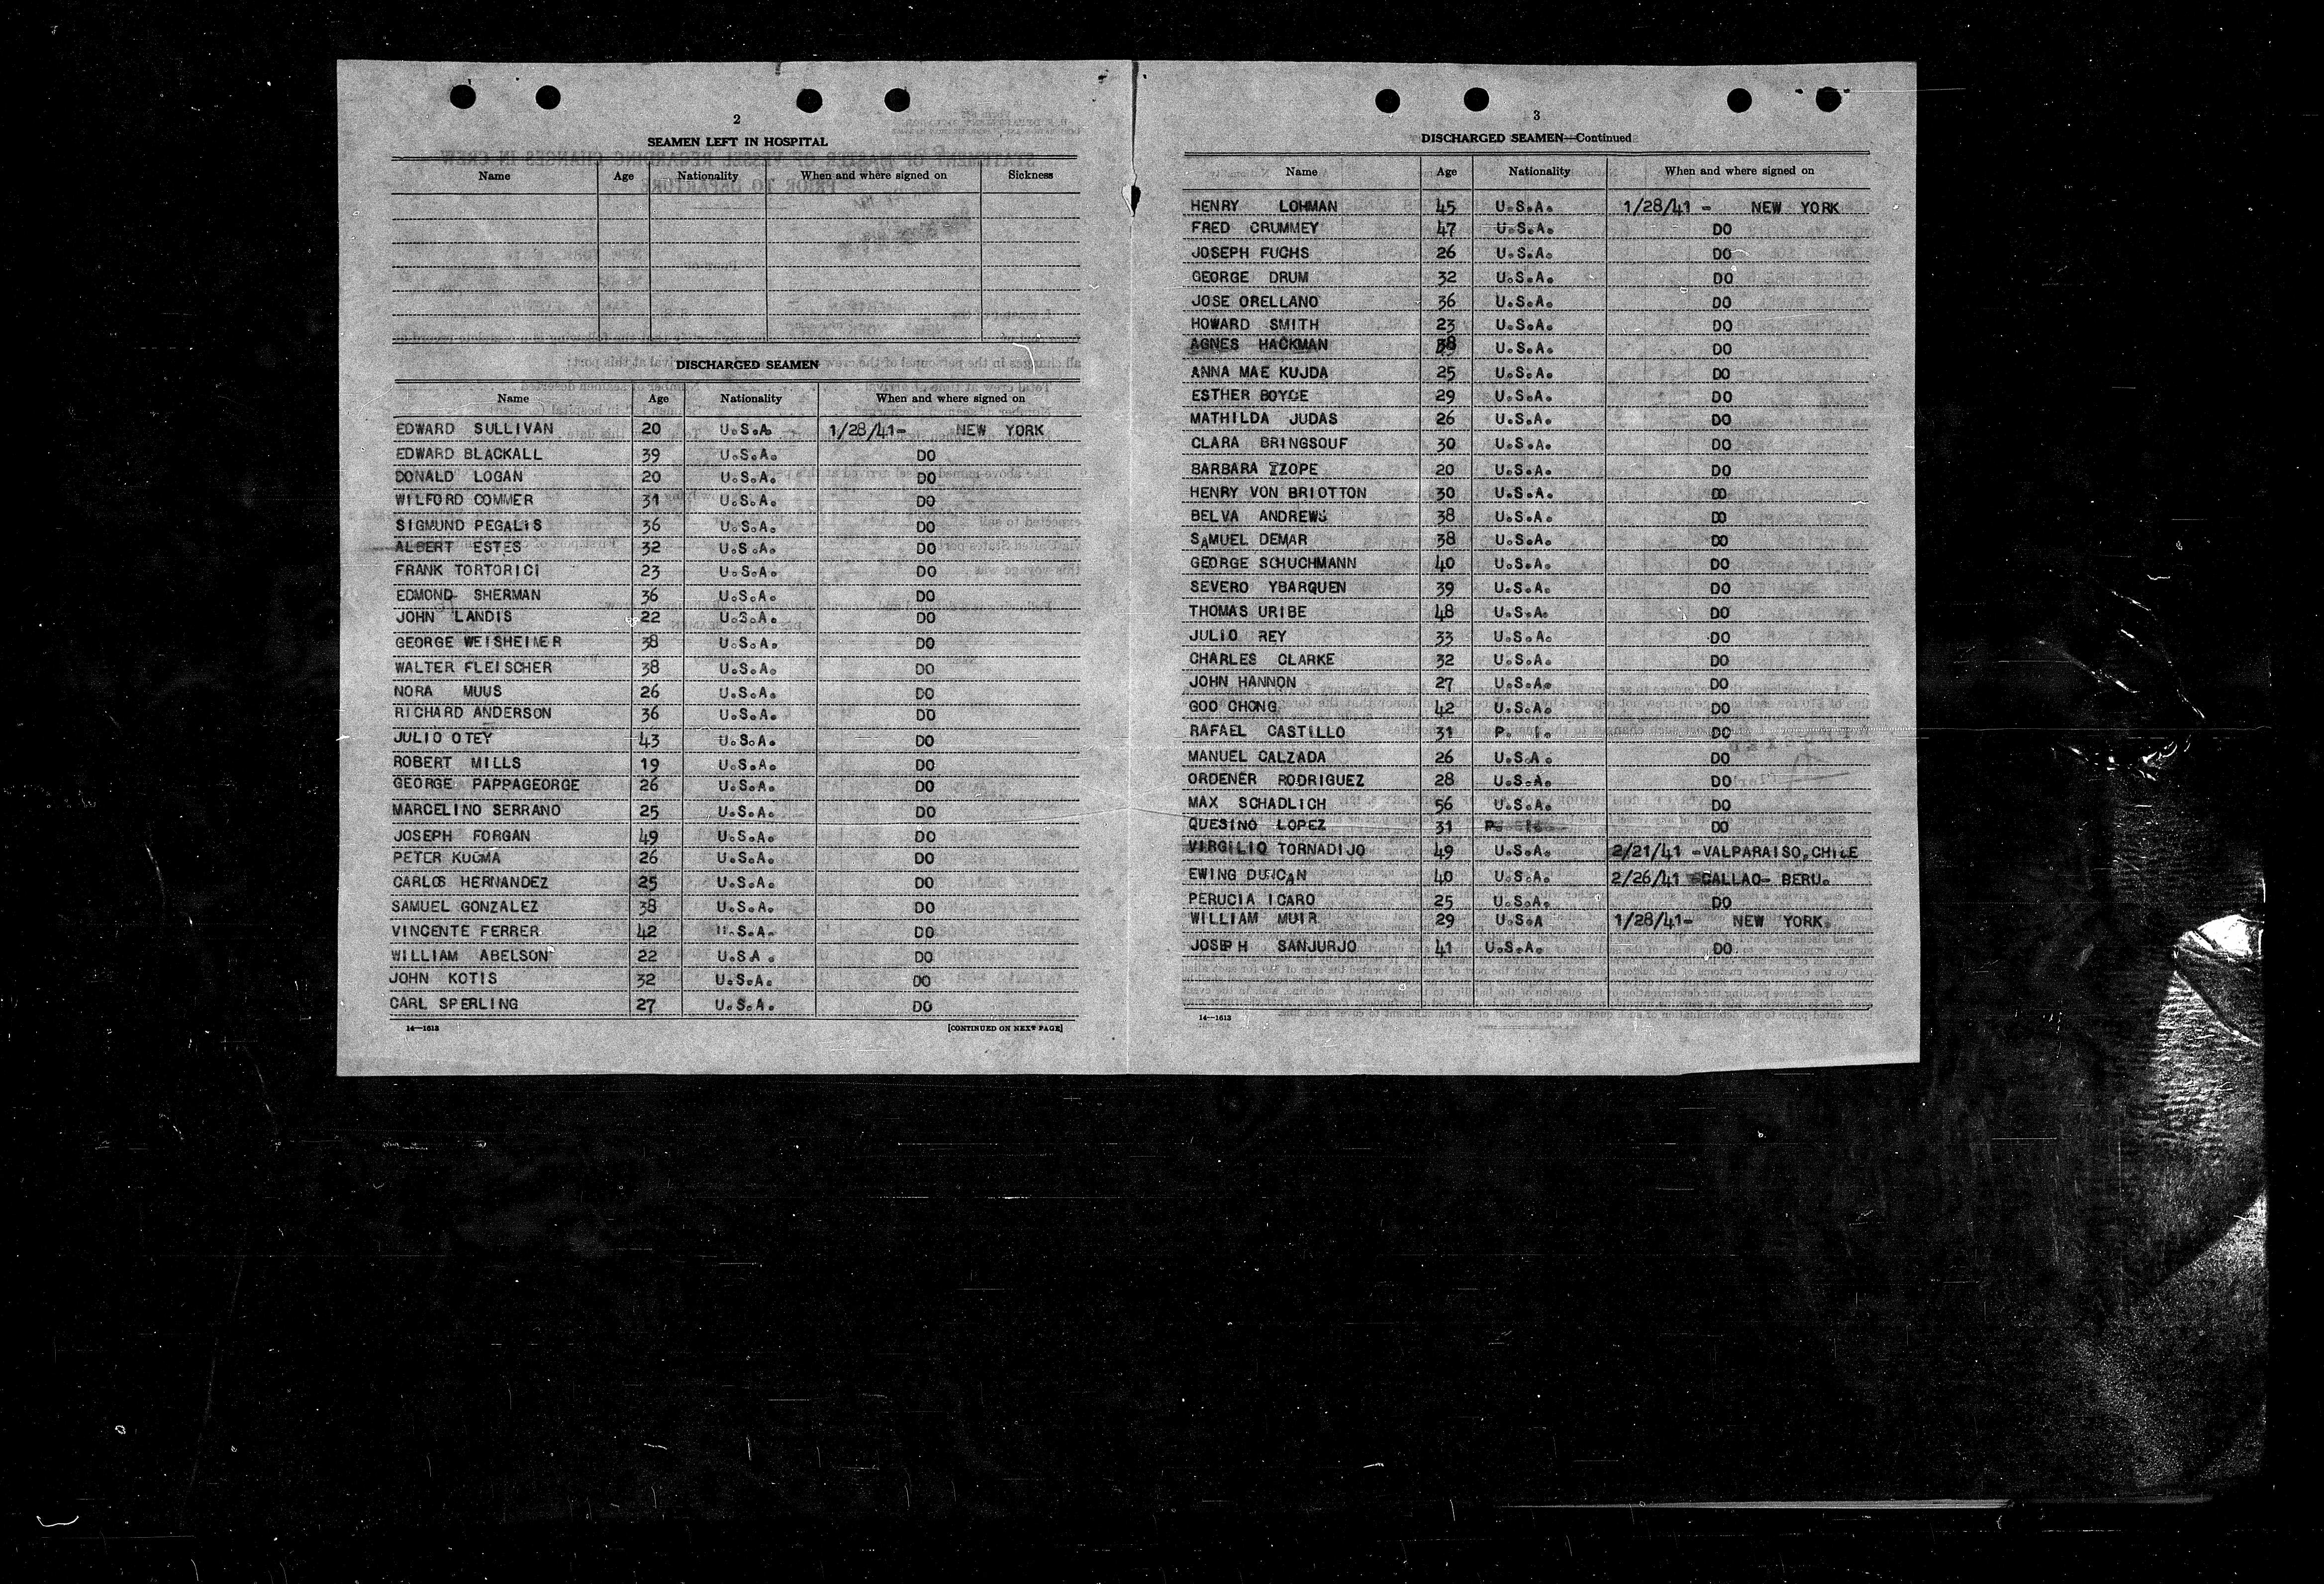 2
SEAMEN LEFT IN HOSPITAL
Name Age Nationality When and where signed on Sickness
DISCHARGED SEAMEN
Name Age Nationality When and where signed on
EDWARD SULLIVAN 20 U.S.A. 1/28/41- NEW YORK
EDWARD BLACKALL 39 U.S.A. DO
DONALD LOGAN 20 U.S.A. DO
WILFORD COMMER 31 U.S.A. DO
SIGMUND PEGALIS 36 U.S.A. DO
ALBERT ESTES 32 U.S.A. DO
FRANK TORTORICI 23 U.S.A. DO
EDMOND SHERMAN 36 U.S.A. DO
JOHN LANDIS 22 U.S.A. DO
GEORGE WEISHEIMER 38 U.S.A. DO
WALTER FLEISCHER 38 U.S.A. DO
NORA MUUS 26 U.S.A. DO
RICHARD ANDERSON 36 U.S.A. DO
JULIO OTEY 43 U.S.A. DO
ROBERT MILLS 19 U.S.A. DO
GEORGE PAPPAGEORGE 26 U.S.A. DO
MARCELINO SERRANO 25 U.S.A. DO
JOSEPH FORGAN 49 U.S.A. DO
PETER KUCMA 26 U.S.A. DO
CARLOS HERNANDEZ 25 U.S.A. DO
SAMUEL GONZALEZ 38 U.S.A. DO
VINCENTE FERRER 42 U.S.A. DO
WILLIAM ABELSON 22 U.S.A. DO
JOHN KOTIS 32 U.S.A. DO
CARL SPERLING 27 U.S.A. DO
14—1613 [CONTINUED ON NEXT PAGE]
3
DISCHARGED SEAMEN—Continued
Name Age Nationality When and where signed on
HENRY LOHMAN 45 U.S.A. 1/28/41 - NEW YORK
FRED CRUMMEY 47 U.S.A. DO
JOSEPH FUCHS 26 U.S.A. DO
GEORGE DRUM 32 U.S.A. DO
JOSE ORELLANO 36 U.S.A. DO
HOWARD SMITH 23 U.S.A. DO
AGNES HACKMAN 38 U.S.A. DO
ANNA MAE KUJDA 25 U.S.A. DO
ESTHER BOYCE 29 U.S.A. DO
MATHILDA JUDAS 26 U.S.A. DO
CLARA BRINGSOUF 30 U.S.A. DO
BARBARA IZOPE 20 U.S.A. DO
HENRY VON BRIOTTON 30 U.S.A. DO
BELVA ANDREWS 38 U.S.A. DO
SAMUEL DEMAR 38 U.S.A. DO
GEORGE SCHUCHMANN 40 U.S.A. DO
SEVERO YBARQUEN 39 U.S.A. DO
THOMAS URIBE 48 U.S.A. DO
JULIO REY 33 U.S.A. DO
CHARLES CLARKE 32 U.S.A. DO
JOHN HANNON 27 U.S.A. DO
GOO CHONG 42 U.S.A. DO
RAFAEL CASTILLO 31 P. I. DO
MANUEL CALZADA 26 U.S.A. DO
ORDENER RODRIGUEZ 28 U.S.A. DO
MAX SCHADLICH 56 U.S.A. DO
QUESINO LOPEZ 31 P. I. DO
VIRGILIO TORNADIJO 49 U.S.A. 2/21/41 -VALPARAISO,CHILE
EWING DUNCAN 40 U.S.A. 2/26/41 CALLAO- BERU.
PERUCIA ICARO 25 U.S.A. DO
WILLIAM MUIR 29 U.S.A 1/28/41- NEW YORK.
JOSEPH SANJURJO 41 U.S.A. DO
14—1613